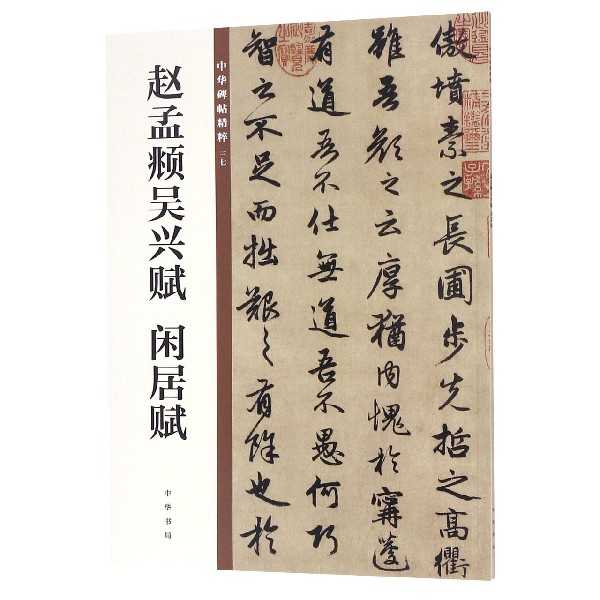 赵孟頫吴兴赋 闲居赋
中华书局
中华碑帖精粹 三七
傲墳素之長圃步先哲之高衢
雖吾顔之云厚猶内愧於甯蘧
有道吾不仕無道吾不愚何巧
智之不足而拙艱之有餘也於